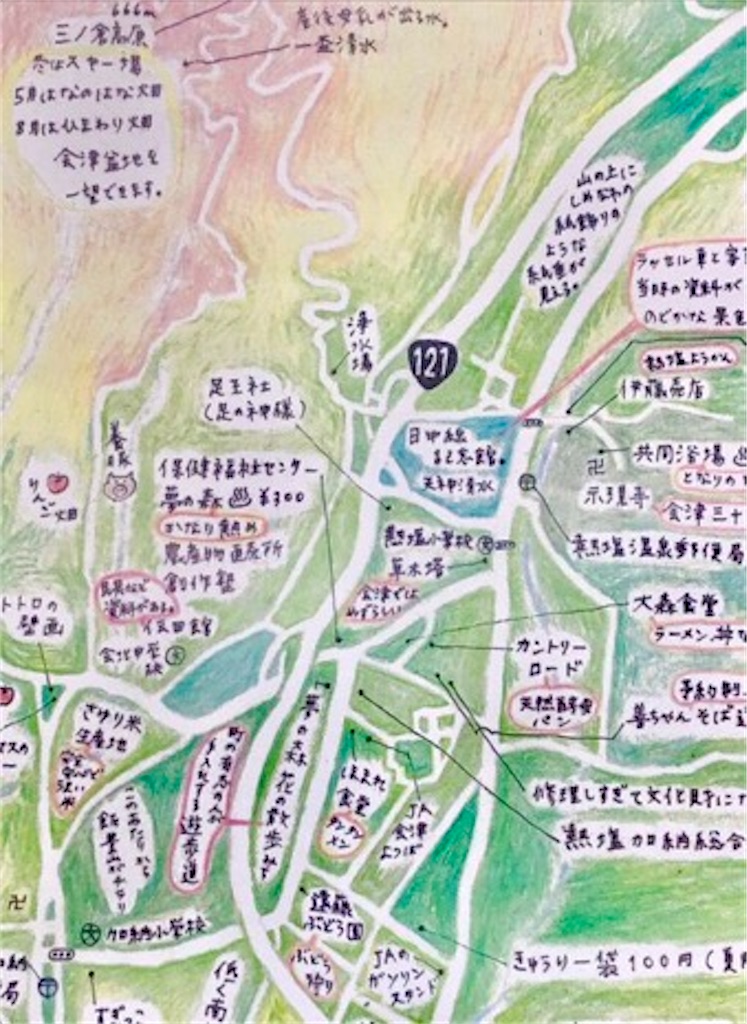 666m
三ノ倉高原
冬はスキー場
5月はなのはな畑
8月はひまわり畑
会津盆地を
一望できます。
産後母乳が出る水。
一盃清水
山の上に
しめなわの
紙飾りの
ような
糸竜が
見える
ラッセル車と客
当時の資料が
のどかな景色
浄水場
121
足王社
(足の神様)
熱塩ようかん
伊藤売店
日中線
記念館。
共同浴場
となりの
示現寺
会津三十
熱塩温泉郵便局
養豚
りんご畑
保健福祉センター
夢の森 ♨ ¥300
かけたり飲め
農産物直売所
創作塾
熱塩小学校
草木塔
会津では
めずらしい
民具など
資料がある。
伝田館
会北中学校
トトロの
壁画
大森食堂
ラーメン、丼
カントリー
ロード
天然酵母
パン
予約制
喜ちゃんそば
さゆり米
生産地
安全
安心で
うまい
米
町の有志のみが
手入れする
遊歩道
「夢の森 花の散歩みち
ほまれ
食堂
タンタン
メン
JA
会津
よつば
修理しすぎて文化財に
熱塩加納総合
このあたりから
飯豊山がチラリ
遠藤
ぶどう園
ぶどう
狩り
JAの
ガソリン
スタンド
きゅうり一袋100円(夏
加納小学校
局
低く南
すぎっこ